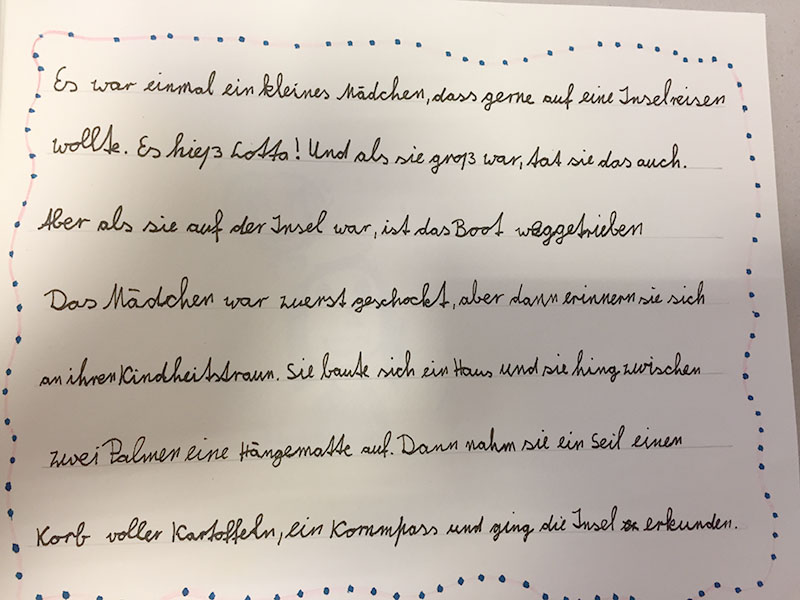 Es war einmal ein kleines Mädchen, dass gerne auf eine Inselreisen
wollte. Es hieß Lotta! Und als sie groß war, tat sie das auch.
Aber als sie auf der Insel war, ist das Boot weggetrieben
Das Mädchen war zuerst geschockt, aber dann erinnern sie sich
an ihren Kindheitstraun. Sie baute sich ein Haus und sie hing zwischen
zwei Palmen eine Hängematte auf. Dann nahm sie ein Seil einen
Korb voller Kartoffeln, ein Kommpass und ging die Insel erkunden.